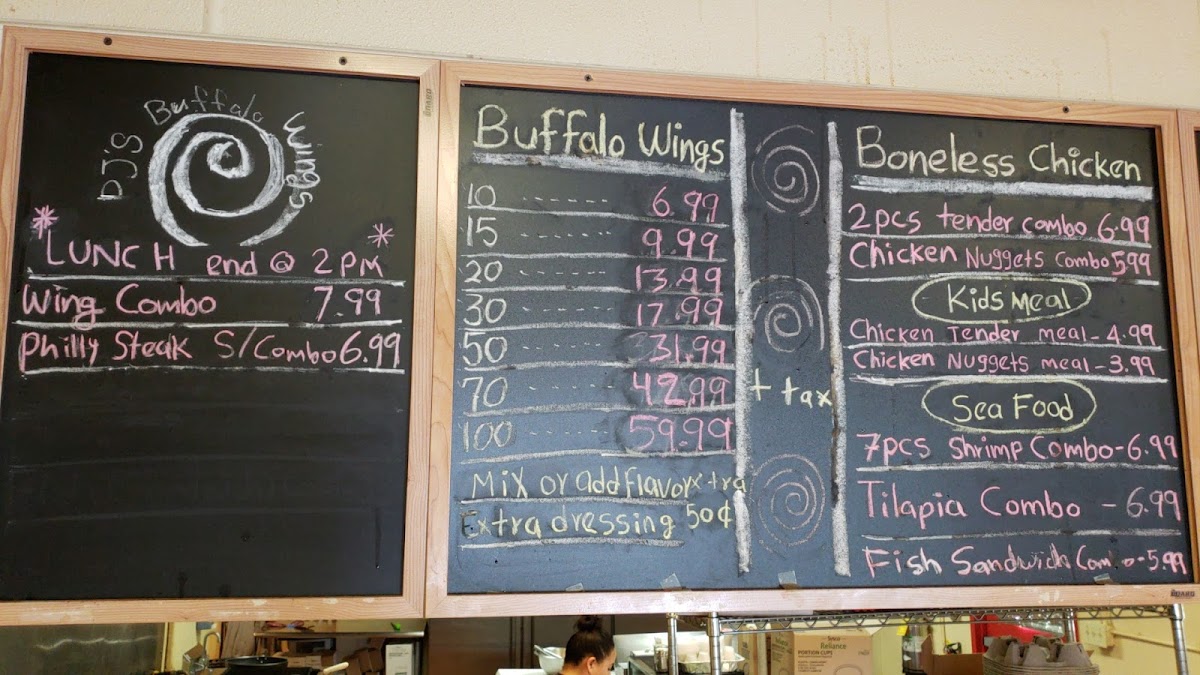 PJ'S Buffalo Wings
* LUNCH end @ 2 PM *
Wing Combo 7.99
Philly Steak S/Combo 6.99
Buffalo Wings
10 ------- 6.99
15 ------- 9.99
20 ------- 13.99
30 ------- 17.99
50 ------- 31.99
70 ------- 42.99
100 ------- 59.99
Mix or add flavor xtra
Extra dressing 50¢
+ tax
Boneless Chicken
2pcs tender combo 6.99
Chicken Nuggets combo 5.99
Kids Meal
Chicken Tender meal - 4.99
Chicken Nuggets meal - 3.99
Sea Food
7pcs Shrimp Combo - 6.99
Tilapia Combo - 6.99
Fish Sandwich Com o - 5.99
BOARD
BOARD
Reliance
PORTION CUPS